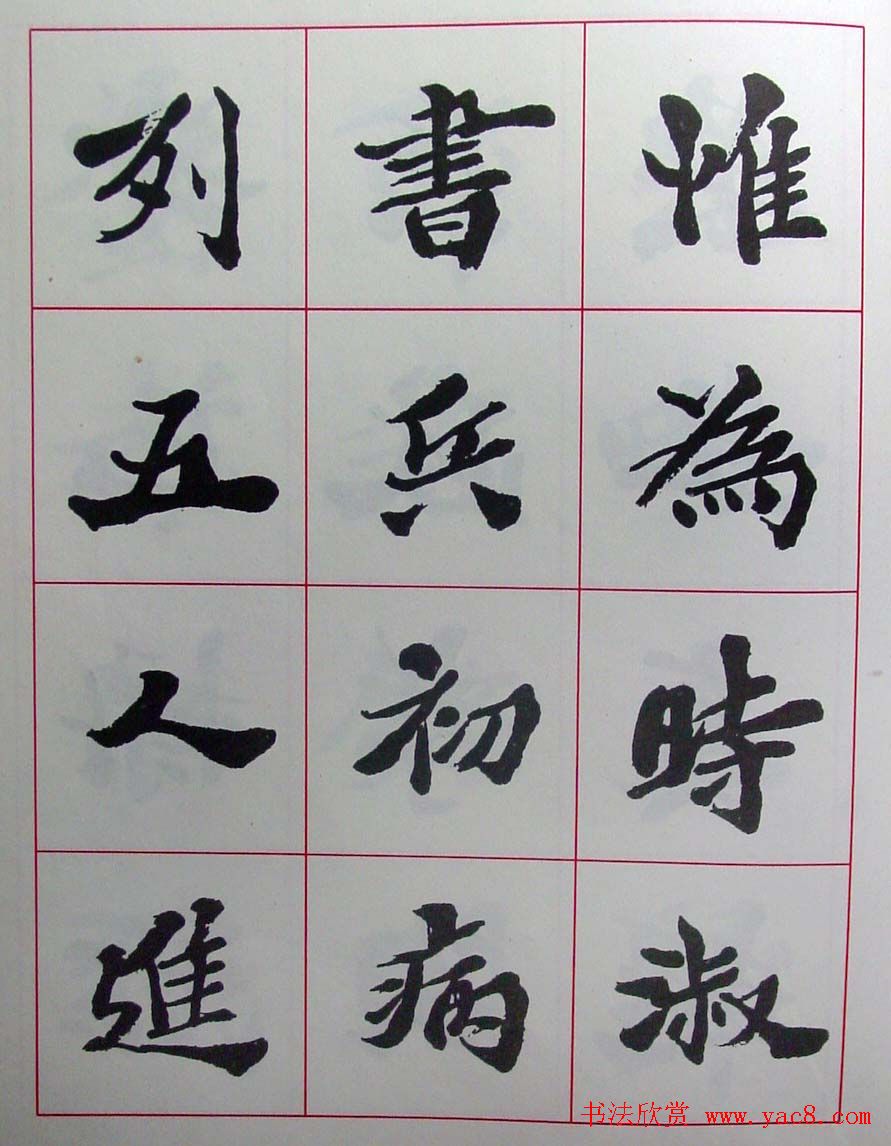 惟為時淑
書兵初病
列五人進
书法欣赏 www.yac8.com